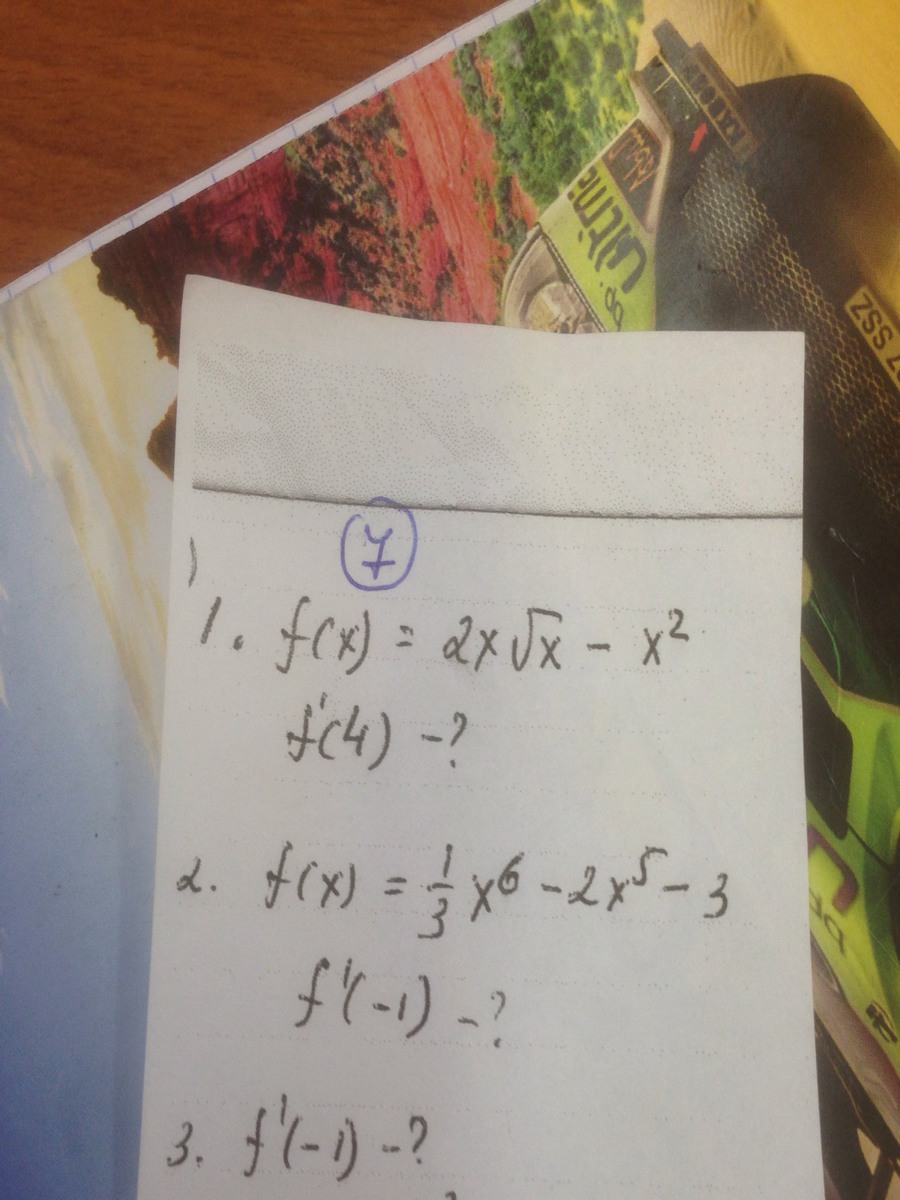 Ultima
SSZ
7
1. f(x) = 2x√x - x²
f'(4) -?
2. f(x) = 1/3 x⁶ - 2x⁵ - 3
f'(-1) -?
3. f'(-1) -?